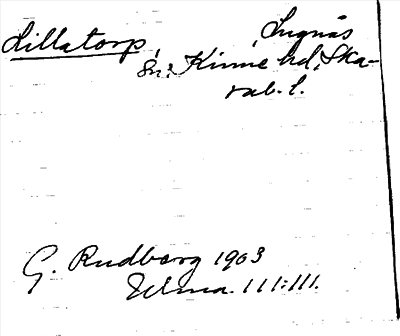 Lillatorp, Lugnås
sn, Kinne hd, Ska-
rab. l.
G. Rudberg 1903
Utma. III:III.